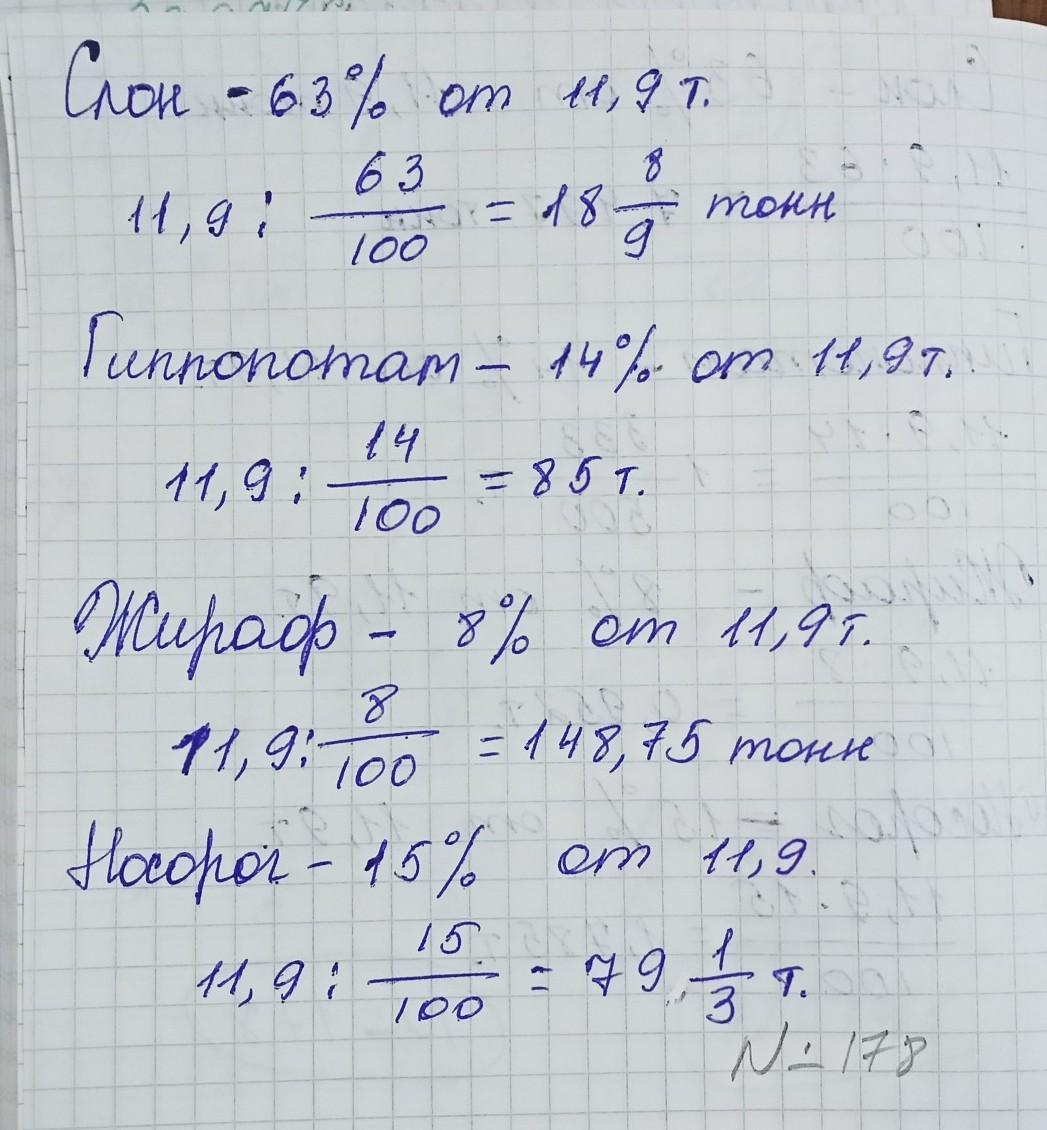 Слон - 63% от 11,9 т.
11,9 : 63/100 = 18 8/9 тонн
Гиппопотам - 14% от 11,9 т.
11,9 : 14/100 = 85 т.
Жираф - 8% от 11,9 т.
11,9 : 8/100 = 148,75 тонн
Носорог - 15% от 11,9.
11,9 : 15/100 = 79 1/3 т.
№ 178